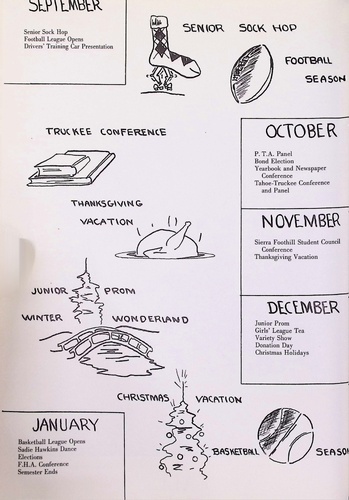 SEPTEMBER
Senior Sock Hop
Football League Opens
Drivers' Training Car Presentation
SENIOR SOCK HOP
FOOTBALL
SEASON
TRUCKEE CONFERENCE
OCTOBER
P. T.A. Panel
Bond Election
Yearbook and Newspaper
Conference
Tahoe-Truckee Conference
and Panel
THANKSGIVING
VACATION
NOVEMBER
Sierra Foothill Student Council
Conference
Thanksgiving Vacation
JUNIOR PROM
WINTER WONDERLAND
DECEMBER
Junior Prom
Girls' League Tea
Variety Show
Donation Day
Christmas Holidays
CHRISTMAS VACATION
JANUARY
Basketball League Opens
Sadie Hawkins Dance
Elections
F.H.A. Conference
Semester Ends
BASKETBALL SEASON